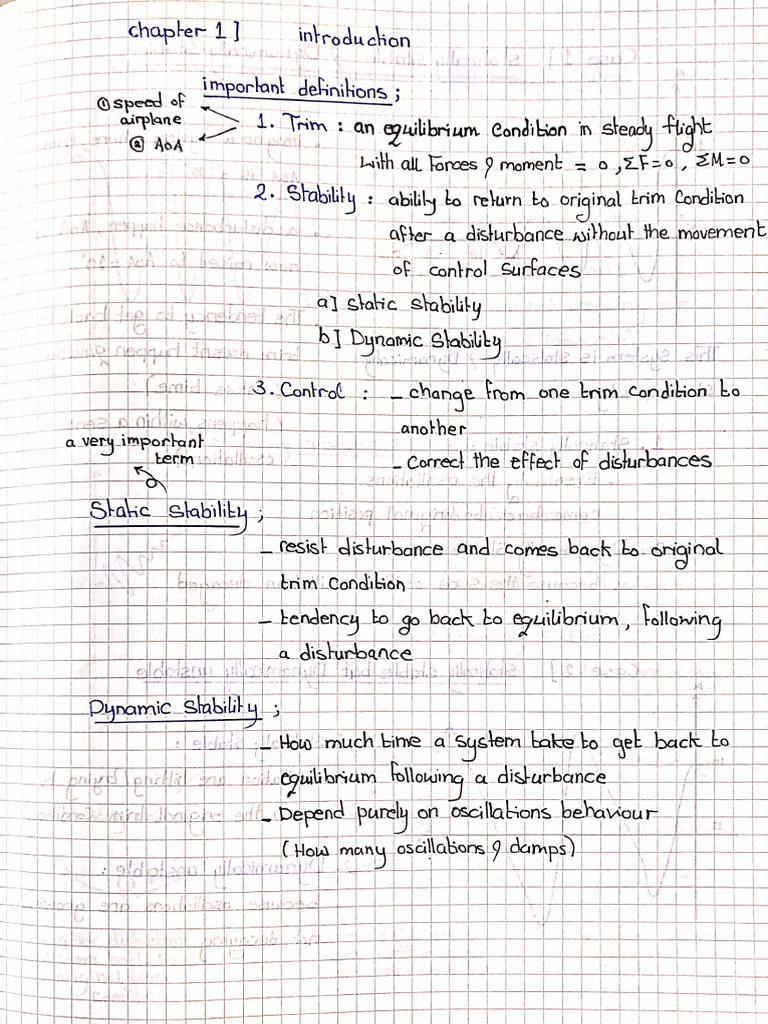 chapter 1] introduction
important definitions ;
① speed of
airplane
② AoA
1. Trim : an equilibrium condition in steady flight
with all Forces & moment = 0 , ΣF=0 , ΣM=0
2. Stability : ability to return to original trim Condition
after a disturbance without the movement
of control surfaces
a] Static Stability
b] Dynamic Stability
3. Control : - change from one trim condition to
another
- Correct the effect of disturbances
a very important
term
Static Stability ;
- resist disturbance and comes back to original
trim condition
- tendency to go back to equilibrium, following
a disturbance
Dynamic Stability ;
- How much time a system take to get back to
equilibrium following a disturbance
- Depend purely on oscillations behaviour
(How many oscillations & damps)